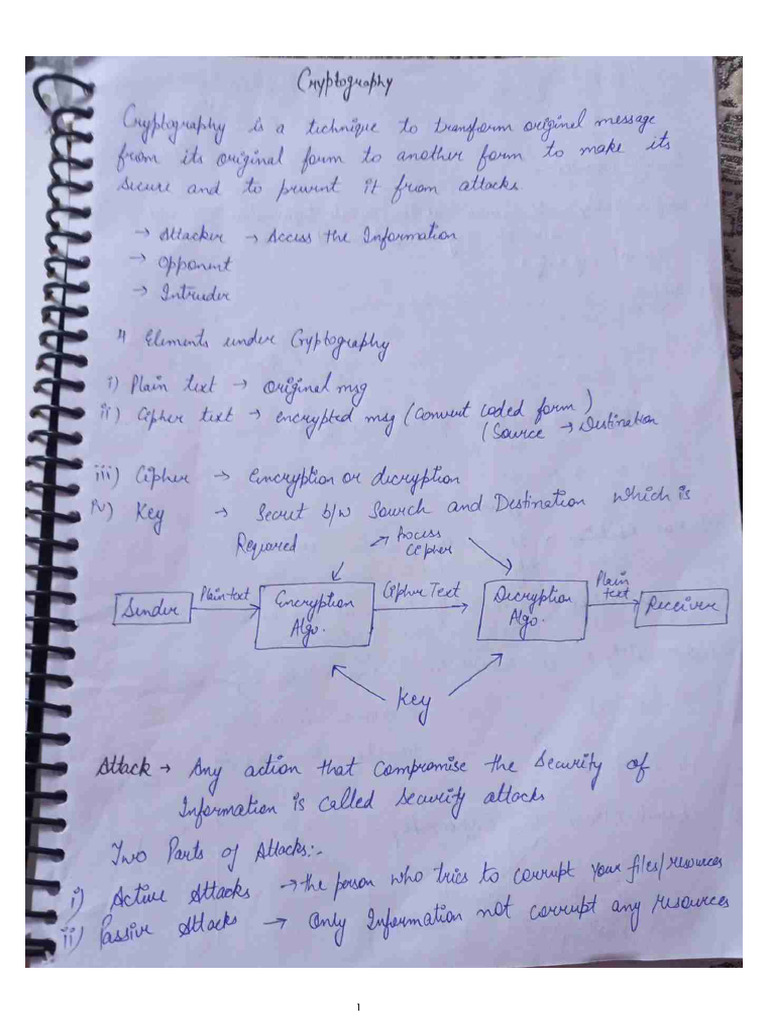 Cryptography
Cryptography is a technique to transform original message
from its original form to another form to make its
secure and to prevent it from attacks.
→ Attacker → Access the Information
→ Opponent
→ Intruder
4 Elements under Cryptography
i) Plain text → original msg
ii) Cipher text → encrypted msg (Convert coded form)
(Source → Destination
iii) Cipher → Encryption or decryption
iv) Key → Secret b/w Source and Destination which is
Required
→ Process
Cipher
Sender
Plain text
Encryption
Algo.
Cipher Text
Decryption
Algo.
Plain
text
Receiver
Key
Attack → Any action that compromise the security of
Information is called security attacks
Two Parts of Attacks:-
i) Active Attacks → the person who tries to corrupt your files/resources
ii) Passive Attacks → Only Information not corrupt any resources
1